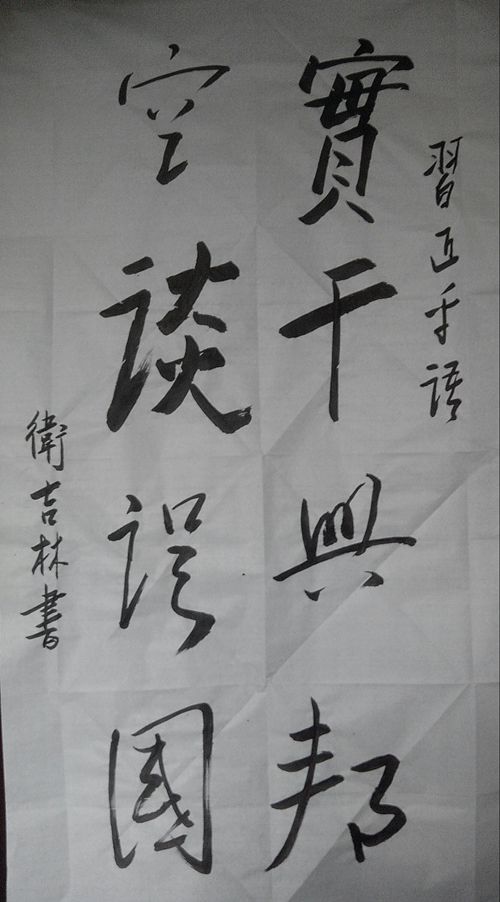 習近平語
實干興邦
空談誤國
衛吉林書